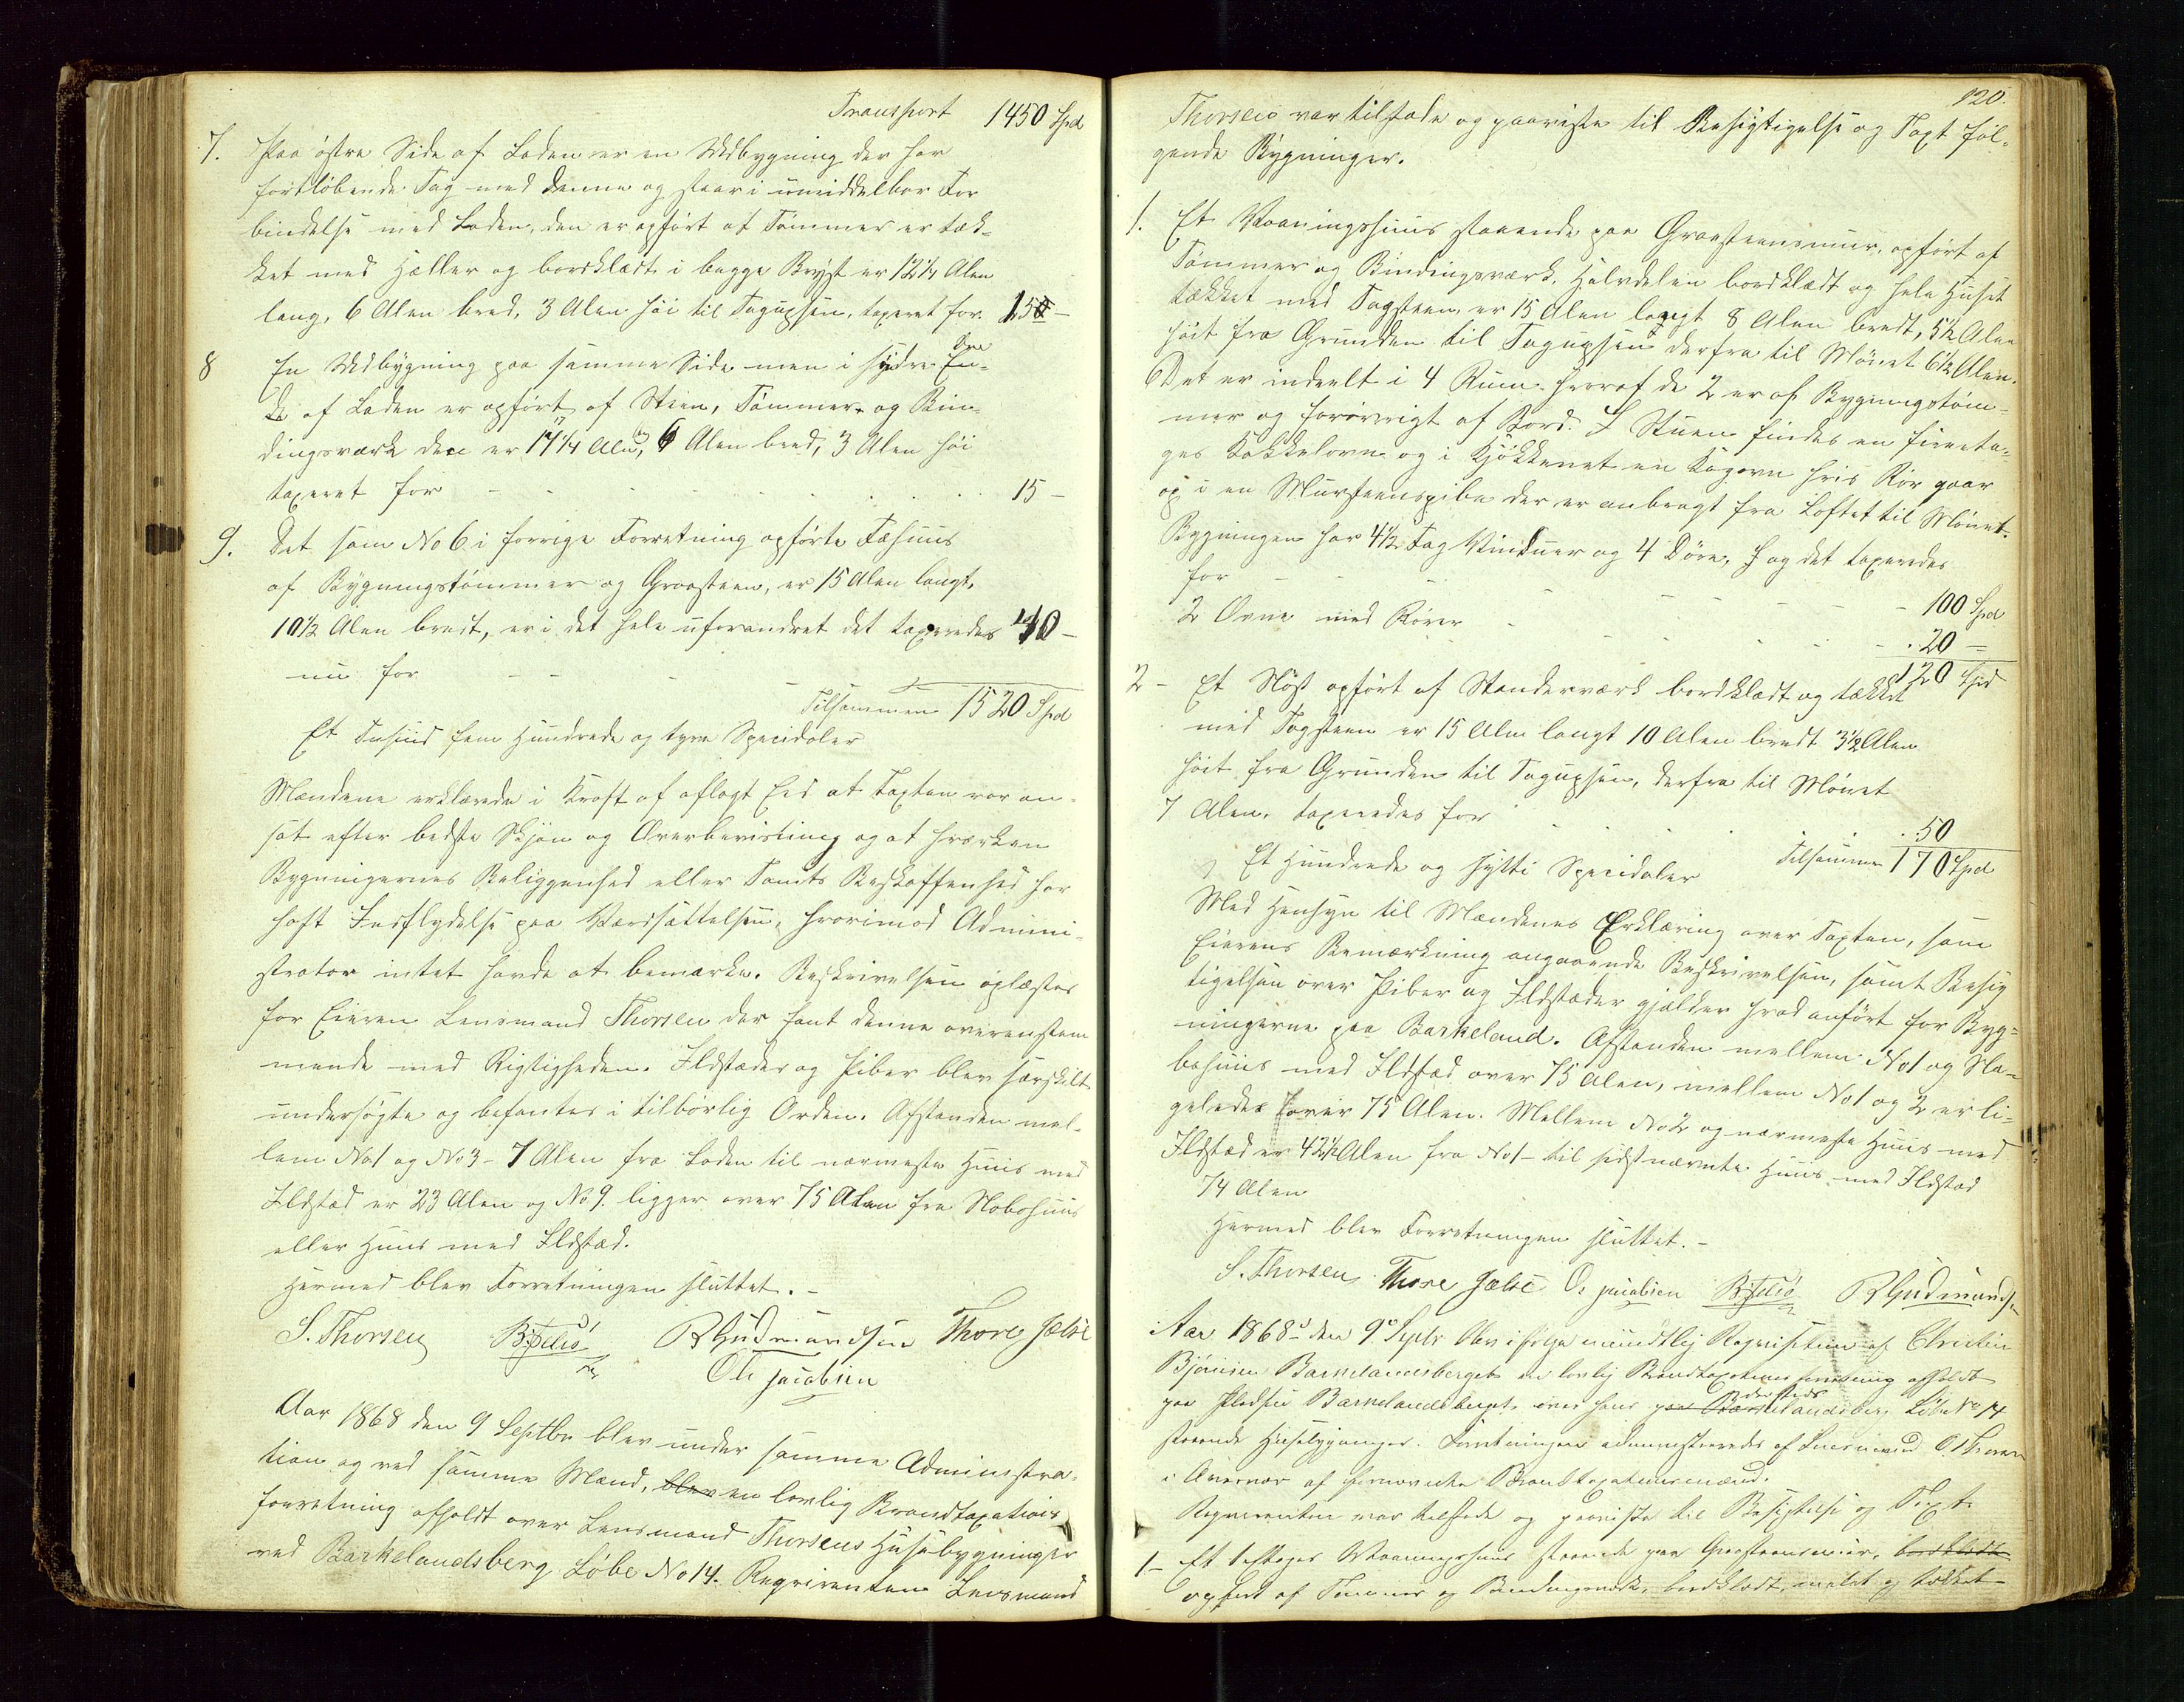 Transport 1450 Spd
7. Paa østre Side af Laden er en Udbygning der har
fortløbende Tag med denne og staar i umiddelbar For
bindelse med Laden, den er opført af Tømmer er tæk-
ket med Heller og bordklædt i begge Bryst er 12¼ Alen
lang, 6 Alen bred, 3 Alen høi til Tagupsen, taxeret for 15 –
8 En Udbygning paa samme Side men i søndre En-
de af Laden er opført af Steen, Tømmer og Bin-
dingsværk der er 17¼ Alen, 6 Alen bred, 3 Alen høi
taxeret for 15 –
9. Det som No 6 i forrige Forretning opførte Fæhuus
af Bygningstømmer og Graasteen, er 15 Alen langt,
10½ Alen bredt, er i det hele uforandret det taxeredes 40 –
nu for
Tilsammen 1520 Spd
Et Tusind fem Hundrede og tyve Speciedaler
Mændene erklærede i Kraft af aflagt Eed at Taxten var an-
sat efter bedste Skjøn og Overbeviisning og at hverken
Bygningernes Beliggenhed eller Tomts Beskaffenhed har
haft Indflydelse paa Værdsættelsen, hvorimod Admini-
strator intet havde at bemærke. Beskrivelsen oplæstes
for Eieren Lensmand Thorsen der fant denne overenstem
mende med Rigtigheden. Ildstæder og Piber blev særskilt
undersøgte og befantes i tilbørlig Orden. Afstanden mel-
lem No 1 og No 3 – 7 Alen fra Laden til nærmeste Huus med
Ildstæd er 23 Alen og No 9. ligger over 75 Alen fra Nabohuus
eller Huus med Ildstæd.
Hermed blev Forretningen sluttet. –
S. Thorsen B. Jelsø R Gudmundsen Thore Jælse
Ole jacobsen
Aar 1868 den 9 Septbr blev under samme Administra-
tion og ved samme Mænd, blev en lovlig Brandtaxations
forretning afholdt over Lensmand Thorsens Huusebygninger
ved Barkelandsberg Løbe No 14. Reqvirenten Lensmand
120.
Thorsen var tilstæde og paaviste til Besigtigelse og Taxt føl-
gende Bygninger.
1. Et Vaaningshuus staaende paa Graasteensmuur, opført af
Tømmer og Bindingsværk, Halvdelen bordklædt og hele Huset
tækket med Tagsteen, er 15 Alen langt 8 Alen bredt, 5½ Alen
høit fra Grunden til Tagupsen derfra til Mønet 6½ Alen.
Det er indeelt i 4 Rum hvoraf de 2 er af Bygningstøm-
mer og forøvrigt af Bord. I Stuen findes en fireeta-
ges Kakkelovn og i Kjøkkenet en Kogovn hvis Rør gaar
op i en Muursteenspibe der er anbragt fra Loftet til Mønet.
Bygningen har 4½ Fag Vinduer og 4 Døre, og det taxeredes
for 100 Spd
2 Ovne med Rører 20 –
120 Spd
2 – Et Nøst opført af Stenderværk bordklædt og tækket
med Tagsteen er 15 Alen langt 10 Alen bredt 3½ Alen
høit fra Grunden til Tagupsen, derfra til Mønet
7 Alen, taxeredes for 50
Tilsammen 170 Spd
Et Hundrede og sytti Speciedaler
Med Hensyn til Mændenes Erklæring over Taxten, samt
Eierens Bemærkning angaaende Beskrivelsen, samt Besig
tigelsen over Piber og Ildstæder gjælder hvad anført for Byg-
ningerne paa Barkeland. Afstanden mellem No 1 og Na-
bohuus med Ildstæd over 75 Alen, mellem No 1 og 2 er li-
geledes over 75 Alen. Mellem No 2 og nærmeste Huus med
Ildstæd er 42½ Alen fra No 1 – til sidstnævnte Huus med Ildstæd
74 Alen
Hermed blev Forretningen sluttet. –
S. Thorsen Thore Jælse Ole jacobsen B. Jelsø R Gudmunds
Aar 1868 den 9 Septbr blev ifølge mundtlig Reqvisition af Christen
Bjørnsen Barkelandsberget en lovlig Brandtaxationsforretning afholdt
paa Pladsen Barkelandsberget over hans paa Barkelandsberg Løbe No 14
staaende Husebygninger. Forretningen administreredes af Lensmand S Thorsen
i Overvær af Brandtaxationsmænd.
Reqvirenten var tilstede og paaviste til Besigtelse og Taxt
1 – Et 1 Etages Vaaningshuus staaende paa Graasteensmuur, bordklædt
opført af Tømmer og Bindingsværk, bordklædt, malet og tækket